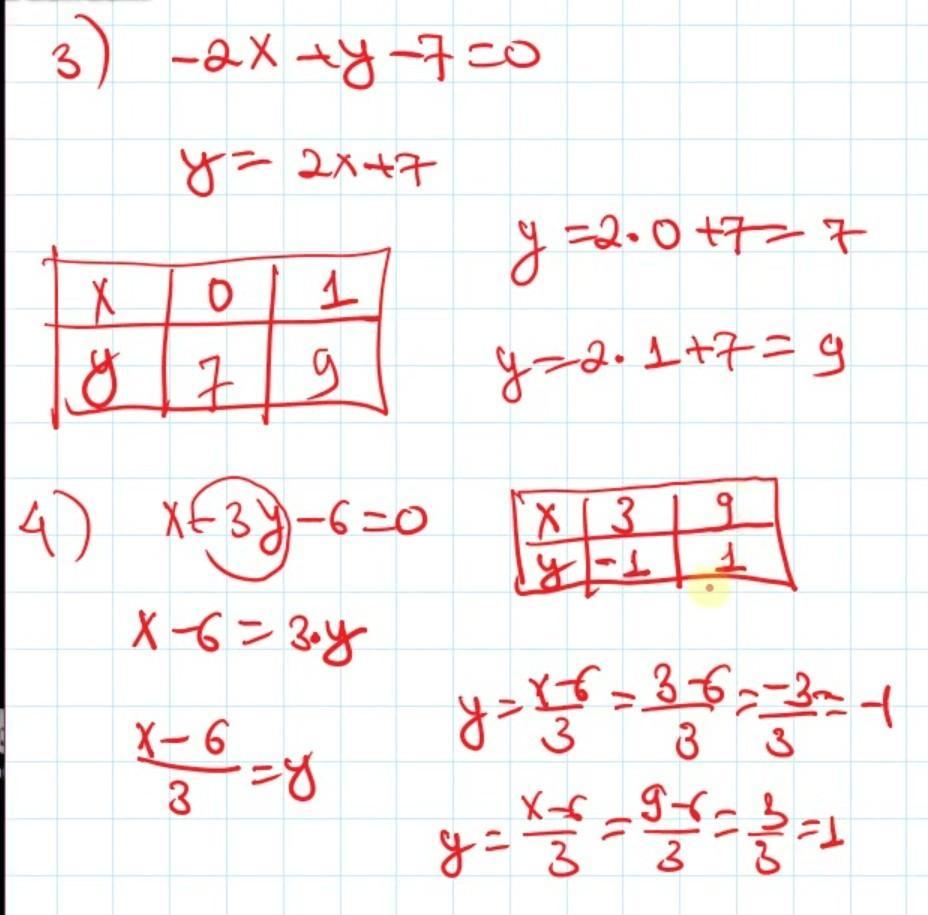 3) -2x +y -7=0
y= 2x+7
y =2·0 +7= 7
x 0 1
y 7 9
y=2·1+7= 9
4) x-3y-6=0
x 3 9
y -1 1
x-6=3·y
y=x-6/3=3-6/3=-3/3=-1
x-6/3=y
y=x-6/3=9-6/3=3/3=1